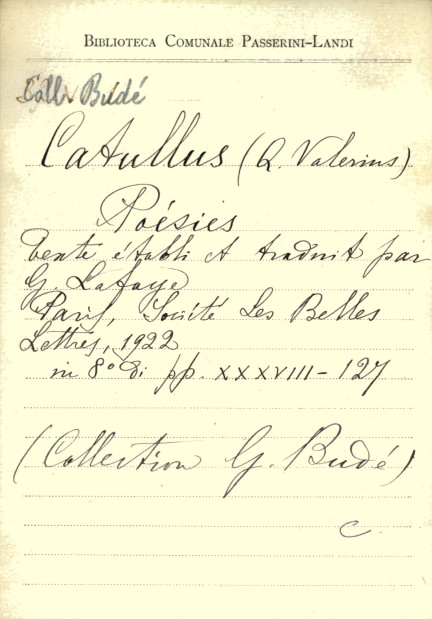 BIBLIOTECA COMUNALE PASSERINI-LANDI
Coll. Budé
Catullus (Q. Valerius)
Poésies
texte établi et traduit par
G. Lafaye
Paris, Société Les Belles
Lettres, 1922
in 8° di pp. XXXVIII - 127
(Collection G. Budé)
C.